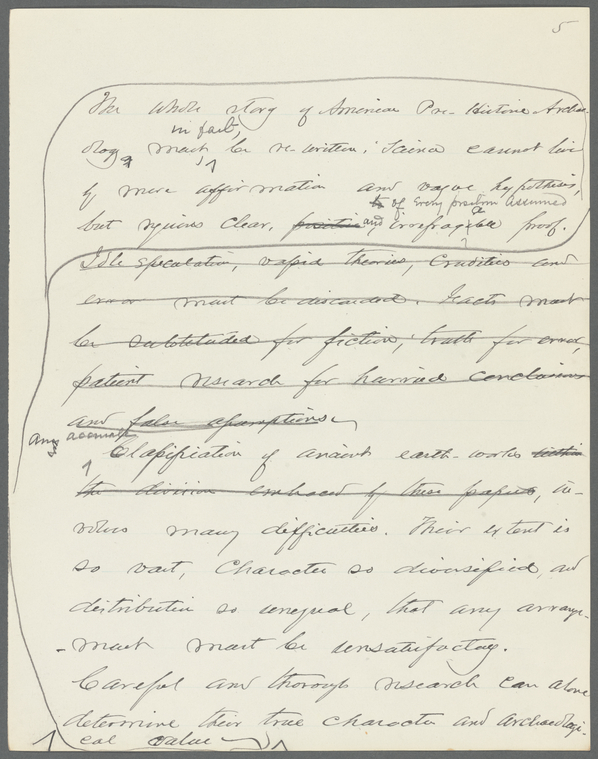 5
The whole story of American Pre-Historic Archae-
in fact,
ology, must be re-written; Science cannot live
by mere affirmation and vague hypothesis,
of every position assumed
but requires clear, positive, and irrefragable proof.
Idle speculation, vapid theories, Crudities and
error must be discarded. Facts must
be substituted for fiction; truth for error,
patient research for hurried conclusions
and false assumptions.
Any accurate
Classification of ancient earth-works within
the division embraced by these papers, in-
volves many difficulties. Their extent is
so vast, Character so diversified, and
distribution so unequal, that any arrange-
-ment must be unsatisfactory.
Careful and thorough research can alone
determine their true character and archaeologi-
cal value